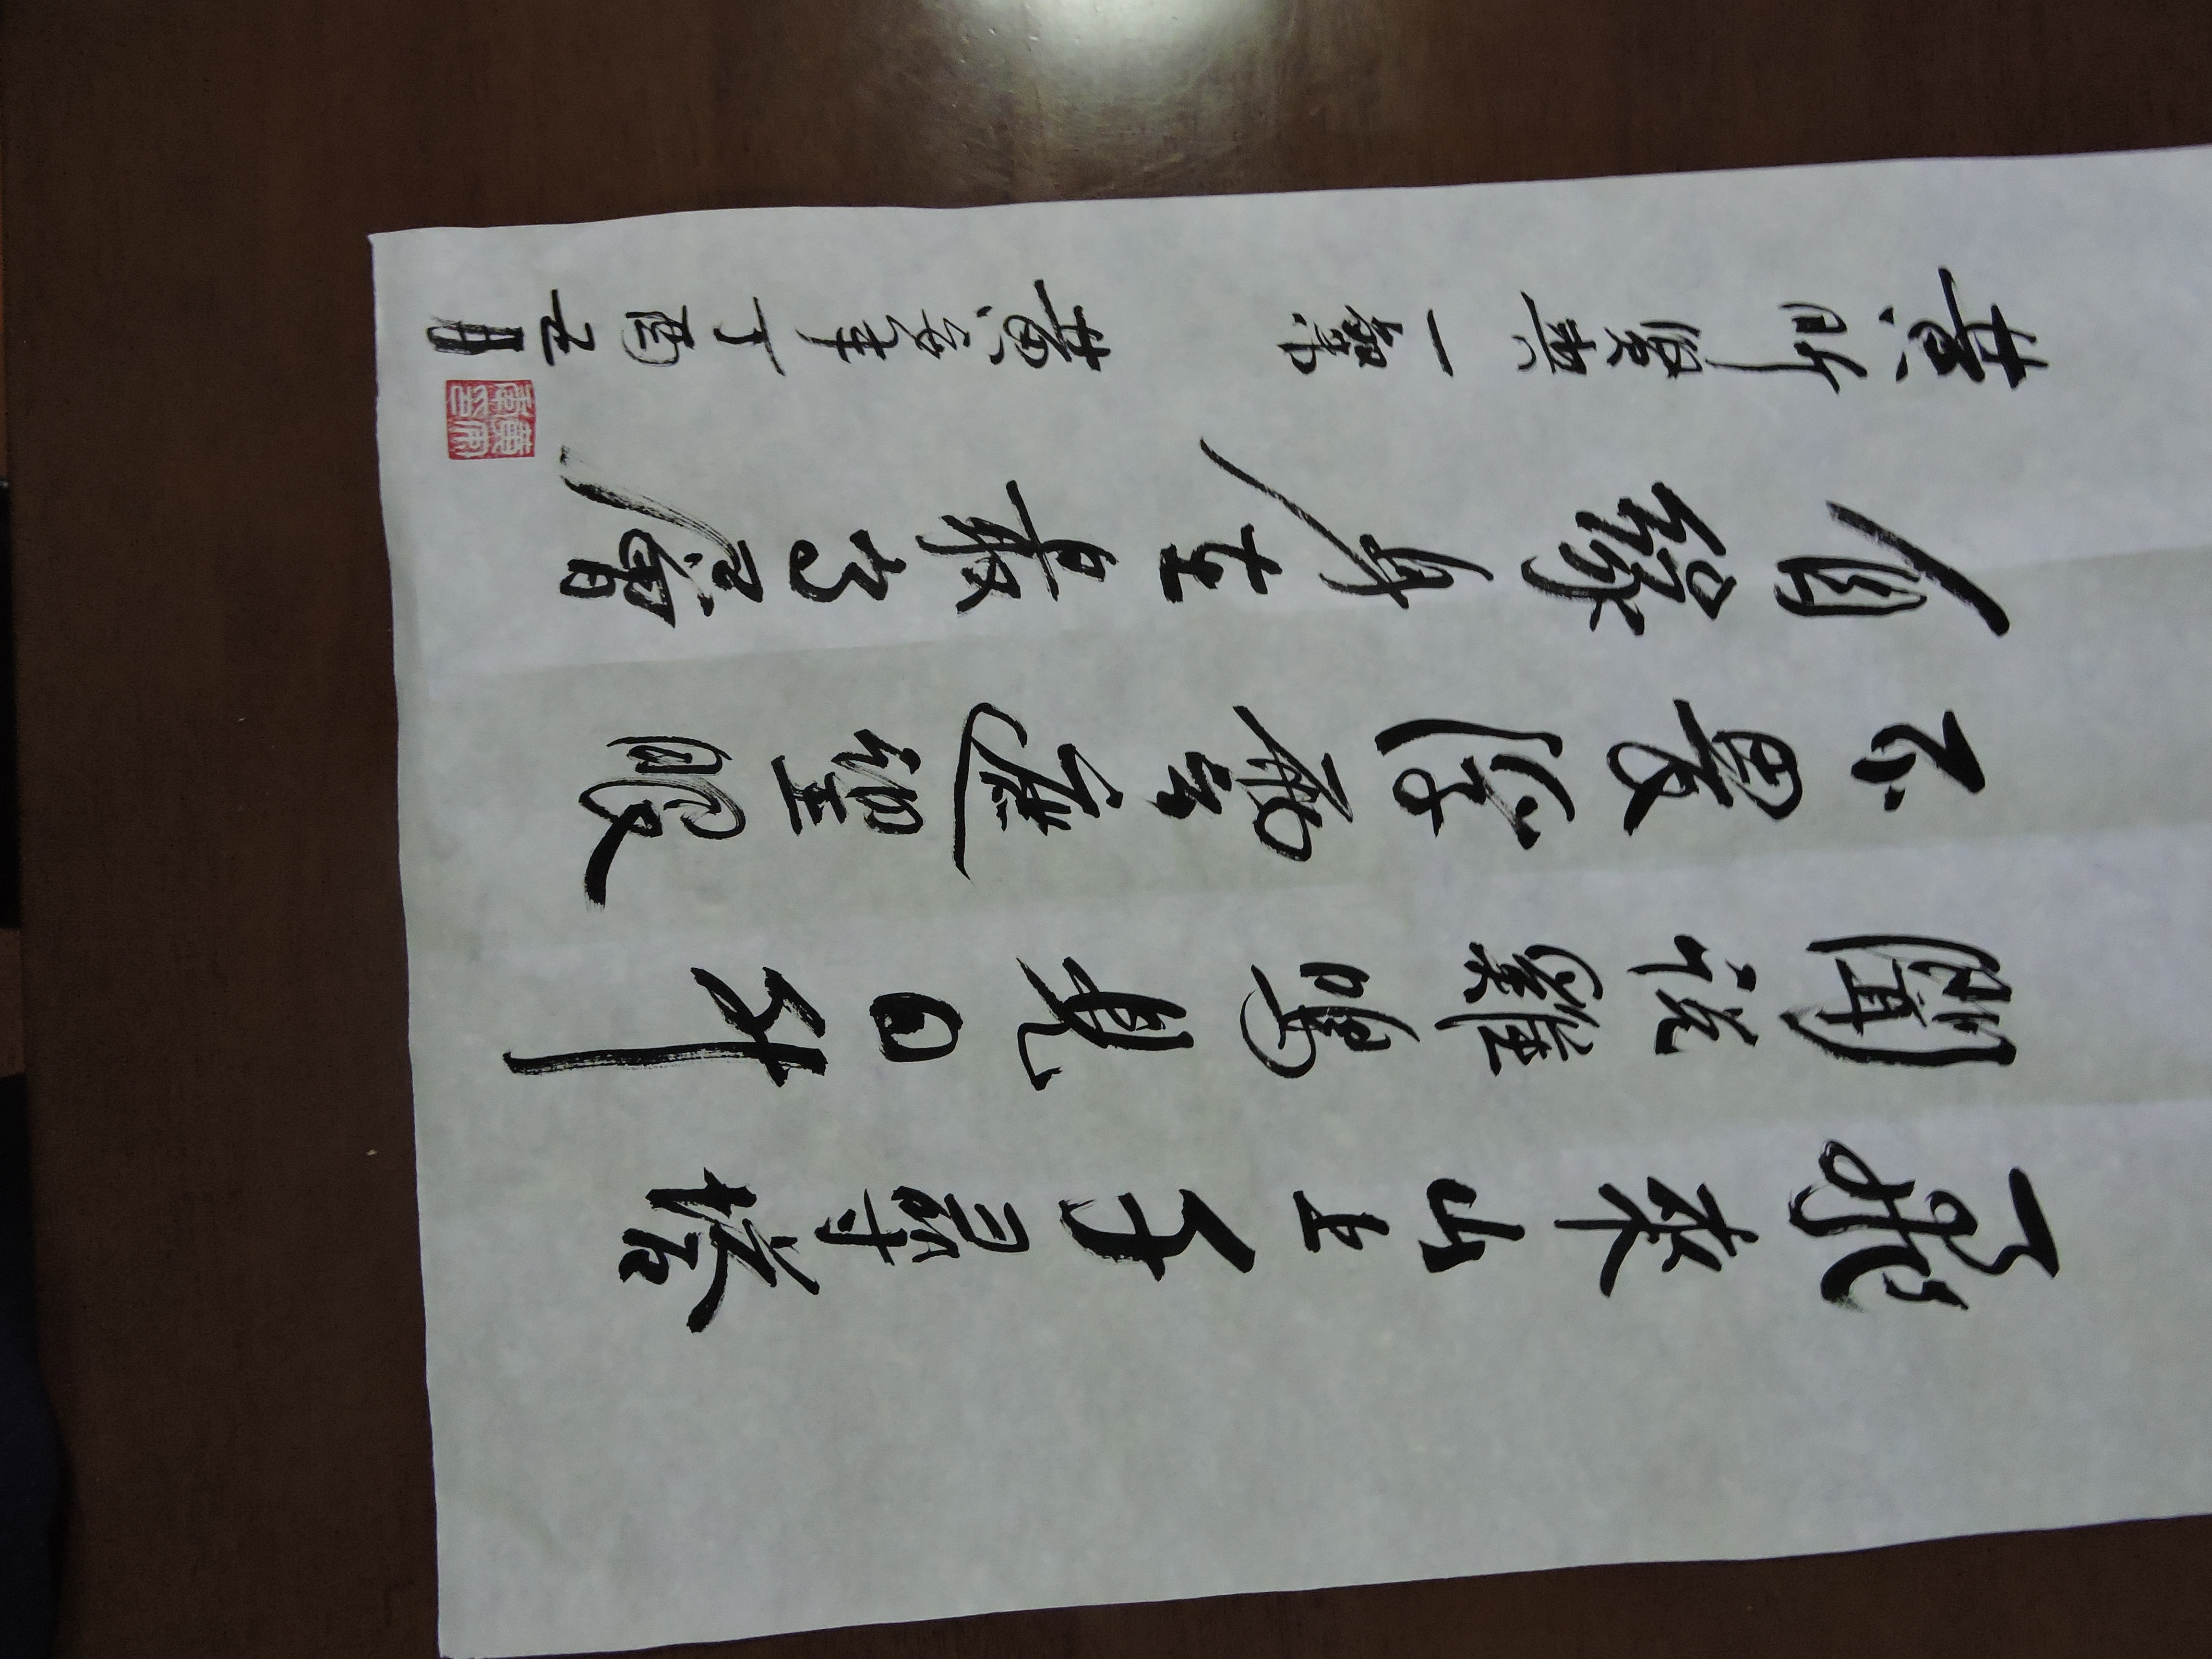 飛來山上千尋塔
聞說雞鳴見日升
不畏浮雲遮望眼
自緣身在最高層
一 丁酉五月